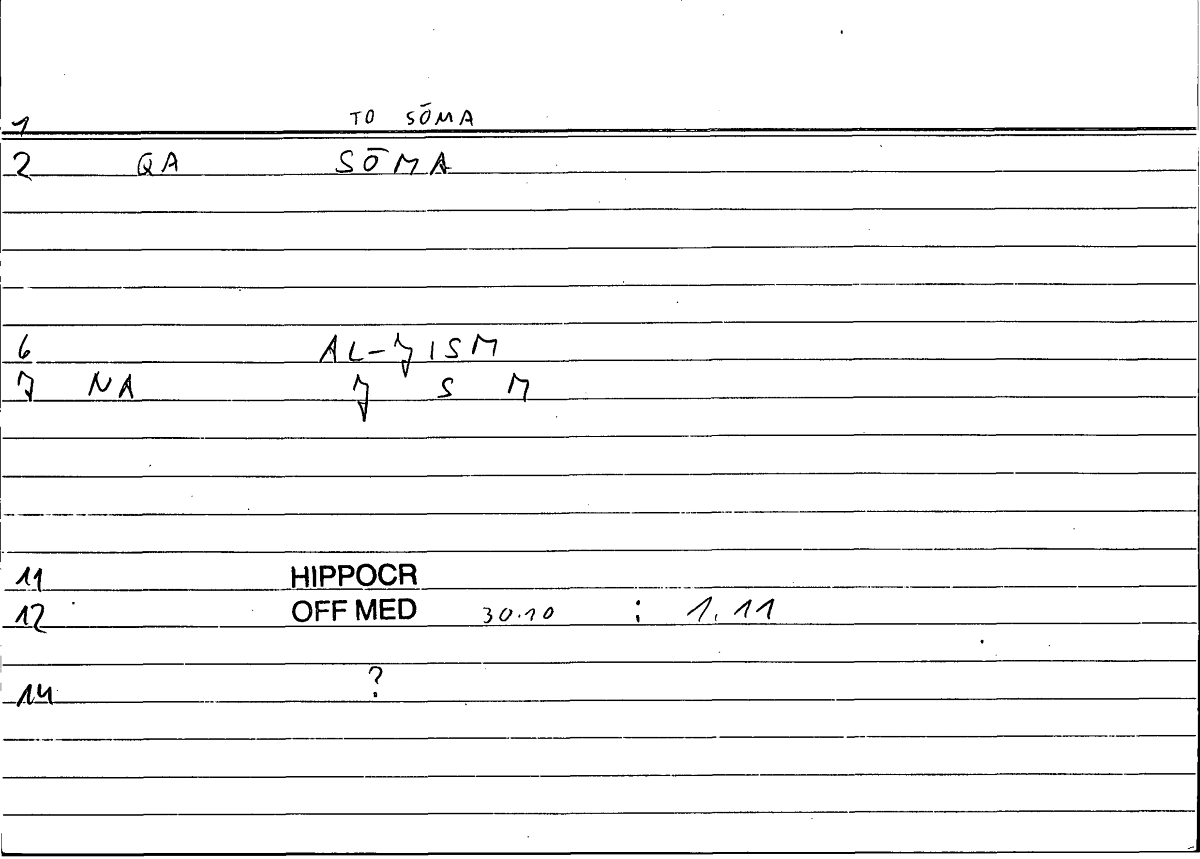 1 TO SŌMA
2 QA SŌMA
6 AL-JISM
7 NA J S M
11 HIPPOCR
12 OFF MED 30.10 : 1.11
14 ?